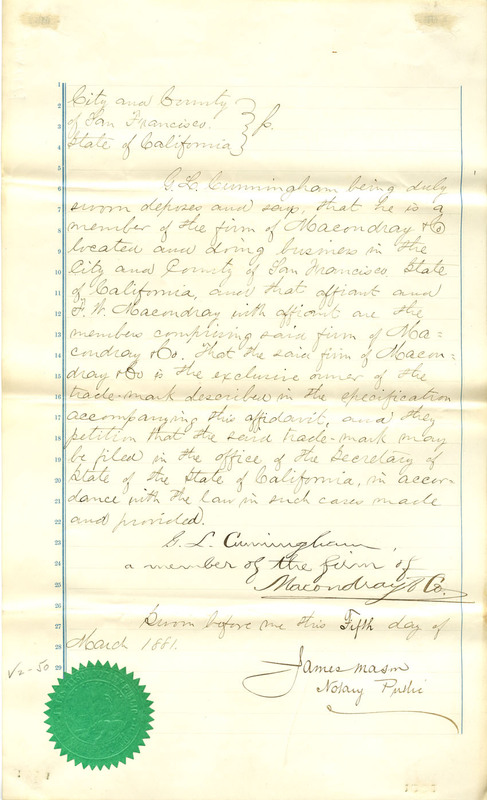 City and County
of San Francisco.
State of California
ss.
G. L. Cunningham being duly
sworn deposes and says, that he is a
member of the firm of Macondray & Co
located and doing business in the
City and County of San Francisco State
of California, and that affiant and
F. W. Macondray with affiant are the
members comprising said firm of Ma=
condray & Co. That the said firm of Macon-
dray & Co is the exclusive owner of the
trade-mark described in the specification
accompanying this affidavit, and they
petition that the said trade-mark may
be filed in the office of the Secretary of
State of the State of California, in accor-
dance with the law in such cases made
and provided.
G. L. Cunningham,
a member of the firm of
Macondray & Co.
Sworn before me this Fifth day of
March 1881.
James Mason
Notary Public
1
2
3
4
5
6
7
8
9
10
11
12
13
14
15
16
17
18
19
20
21
22
23
24
25
26
27
28
29